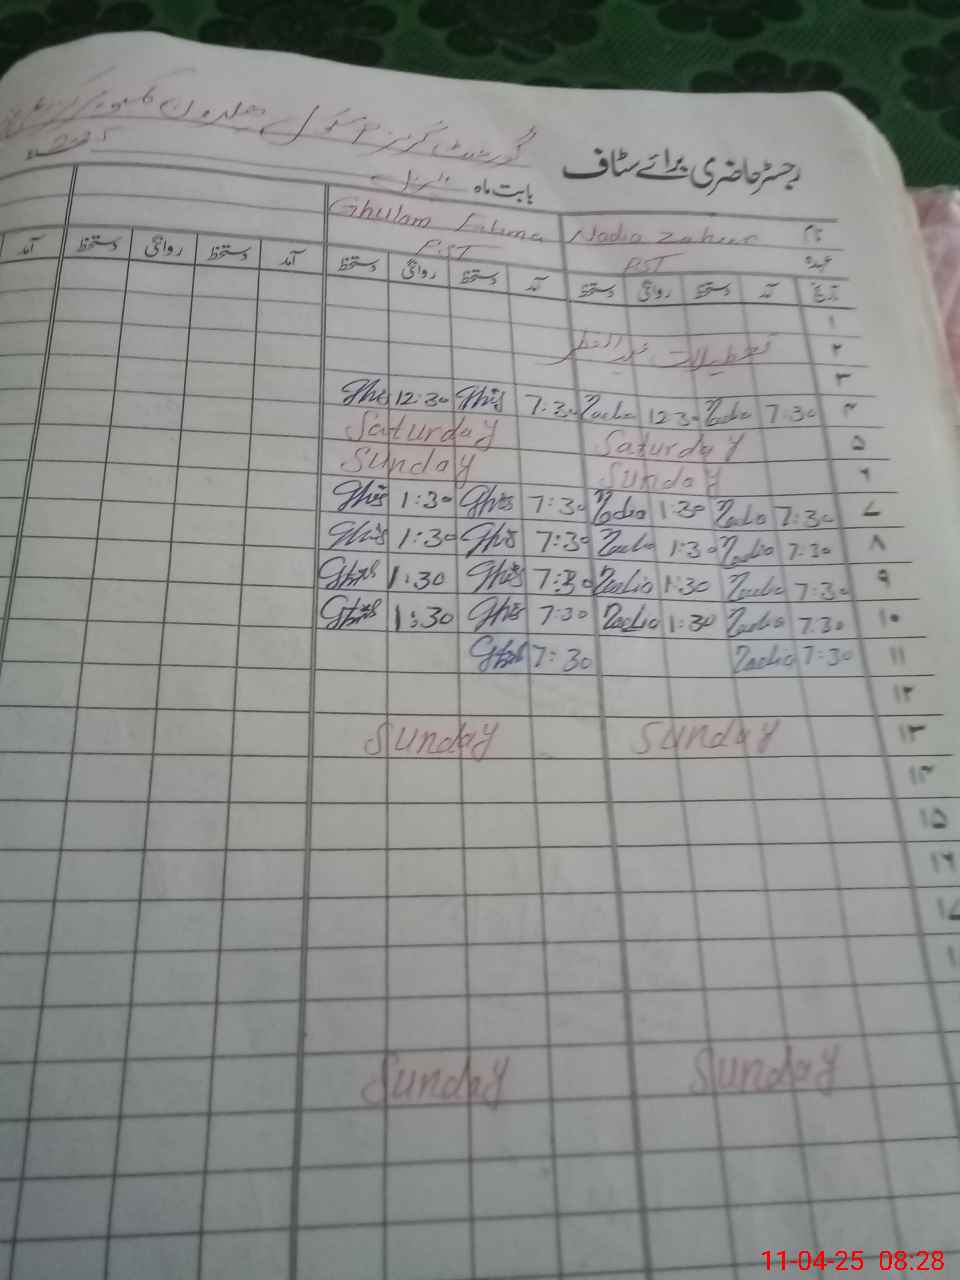 گورنمنٹ گرلز سکول
رجسٹر حاضری برائے سٹاف
بابت ماہ اپریل 2025
نام Nadia Zahur Ghulam Fatima
عہدہ PST PST
تاریخ آمد دستخط روانگی دستخط آمد دستخط روانگی دستخط آمد دستخط روانگی دستخط آمد
۱
۲ تعطیلات عید الفطر
۳
۴ 7:30 Nadia 12:30 Nadia 7:30 Ghis 12:30 Ghs
۵ Saturday Saturday
۶ Sunday Sunday
۷ 7:30 Nadia 1:30 Nadia 7:30 Ghis 1:30 Ghis
۸ 7:30 Nadia 1:30 Nadia 7:30 Ghis 1:30 Ghis
۹ 7:30 Nadia 1:30 Nadia 7:30 Ghis 1:30 Ghis
۱۰ 7:30 Nadia 1:30 Nadia 7:30 Ghis 1:30 Ghis
۱۱ 7:30 Nadia 7:30 Ghis
۱۲
۱۳ Sunday Sunday
۱۴
۱۵
۱۶
۱۷
Sunday Sunday
11-04-25 08:28